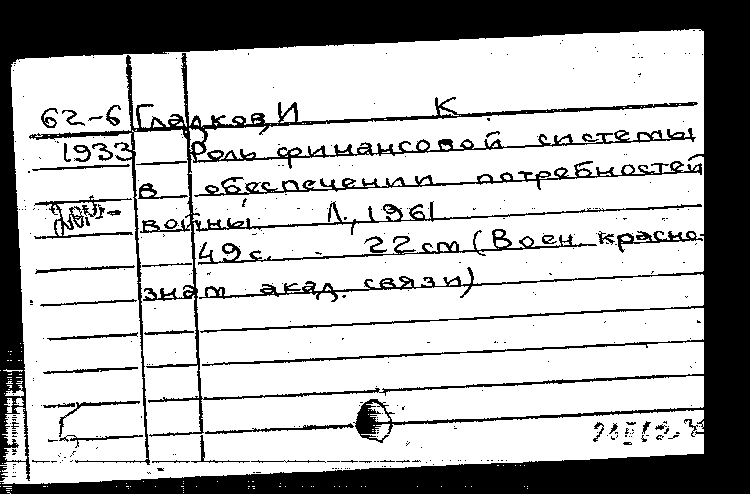 62-6 Гладков, И К
1933 Роль финансовой системы
в обеспечении потребностей
войны. Л., 1961
49 с. 22 см (Воен. красно-
знам акад. связи)